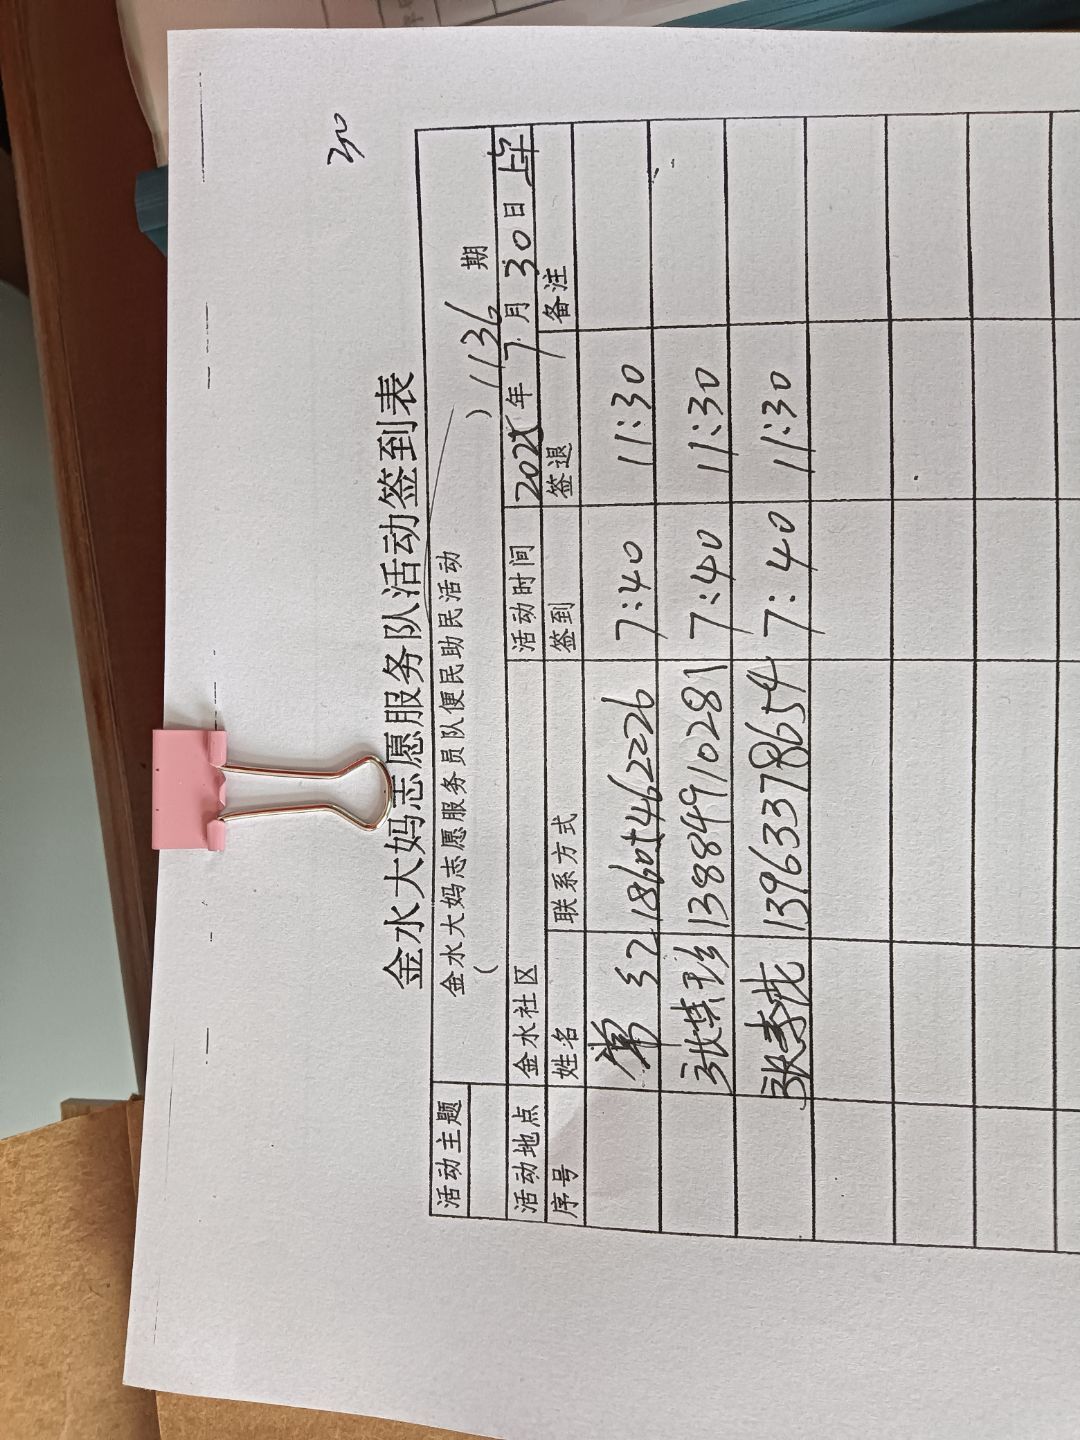 30
金水大妈志愿服务队活动签到表
活动主题 金水大妈志愿服务员队便民助民活动
( ) 1136 期
活动地点 金水社区 活动时间 2025年7月30日 上午
序号 姓名 联系方式 签到 签退 备注
常 7:40 11:30
张 13884910281 7:40 11:30
张 13963378654 7:40 11:30